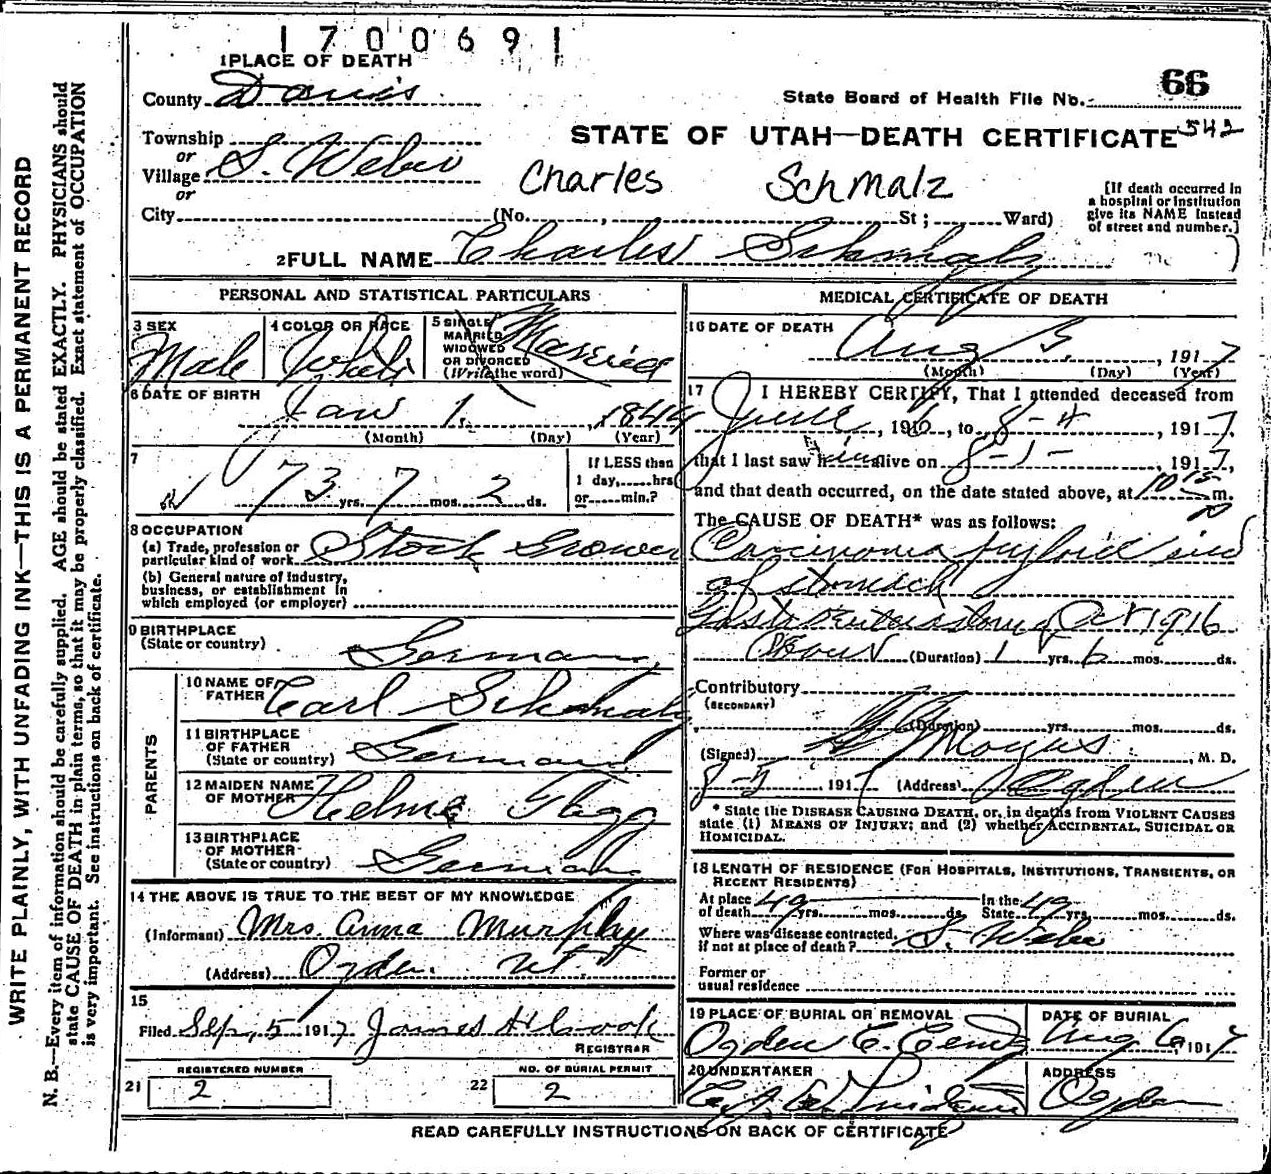 1700691
1 PLACE OF DEATH
County Davis
66
State Board of Health File No.
Township
or
Village S. Weber
or
STATE OF UTAH—DEATH CERTIFICATE 542
Charles Schmalz
City (No. , St; Ward)
[If death occurred in
a hospital or institution
give its NAME instead
of street and number.]
2 FULL NAME Charles Schmalz
PERSONAL AND STATISTICAL PARTICULARS
3 SEX
Male
4 COLOR OR RACE
White
5 SINGLE
MARRIED
WIDOWED
OR DIVORCED
(Write the word)
Married
6 DATE OF BIRTH
Jan 1. , 1844
(Month) (Day) (Year)
7
73 yrs. 7 mos. 2 ds.
If LESS than
1 day, hrs
or min.?
8 OCCUPATION
(a) Trade, profession or
particular kind of work Stock Grower
(b) General nature of Industry,
business, or establishment in
which employed (or employer)
9 BIRTHPLACE
(State or country)
Germany
PARENTS
10 NAME OF
FATHER Carl Schmalz
11 BIRTHPLACE
OF FATHER
(State or country) Germany
12 MAIDEN NAME
OF MOTHER
13 BIRTHPLACE
OF MOTHER
(State or country) Germany
14 THE ABOVE IS TRUE TO THE BEST OF MY KNOWLEDGE
(Informant) Mrs. Anna Murphy
(Address) Ogden. Ut
15
Filed Sep, 5 1917 James H Cook
REGISTRAR
REGISTERED NUMBER
21 2
NO. OF BURIAL PERMIT
22 2
MEDICAL CERTIFICATE OF DEATH
16 DATE OF DEATH
Aug 3. , 1917
(Month) (Day) (Year)
17 I HEREBY CERTIFY, That I attended deceased from
June , 1916, to 8-4 , 1917,
that I last saw him alive on 8-1- , 1917,
and that death occurred, on the date stated above, at 10 15 m.
The CAUSE OF DEATH* was as follows:
Carcinoma pyloric end
of stomach
Gastroenterostomy Oct 1916
About (Duration) 1 yrs. 6 mos. ds.
Contributory
(SECONDARY)
(Duration) yrs. mos. ds.
(Signed) , M. D.
8-5 , 1917 (Address) Ogden
* State the DISEASE CAUSING DEATH, or, in deaths from VIOLENT CAUSES
state (1) MEANS OF INJURY; and (2) whether ACCIDENTAL, SUICIDAL OR
HOMICIDAL.
18 LENGTH OF RESIDENCE (FOR HOSPITALS, INSTITUTIONS, TRANSIENTS, OR
RECENT RESIDENTS)
At place
of death 49 yrs. mos. ds. In the
State 49 yrs. mos. ds.
Where was disease contracted,
if not at place of death? S. Weber
Former or
usual residence
19 PLACE OF BURIAL OR REMOVAL
Ogden C. Cem
DATE OF BURIAL
Aug 6, 1917
20 UNDERTAKER
ADDRESS
Ogden
READ CAREFULLY INSTRUCTIONS ON BACK OF CERTIFICATE
WRITE PLAINLY, WITH UNFADING INK—THIS IS A PERMANENT RECORD
N. B.—Every item of information should be carefully supplied. AGE should be stated EXACTLY. PHYSICIANS should
state CAUSE OF DEATH in plain terms, so that it may be properly classified. Exact statement of OCCUPATION
is very important. See instructions on back of certificate.